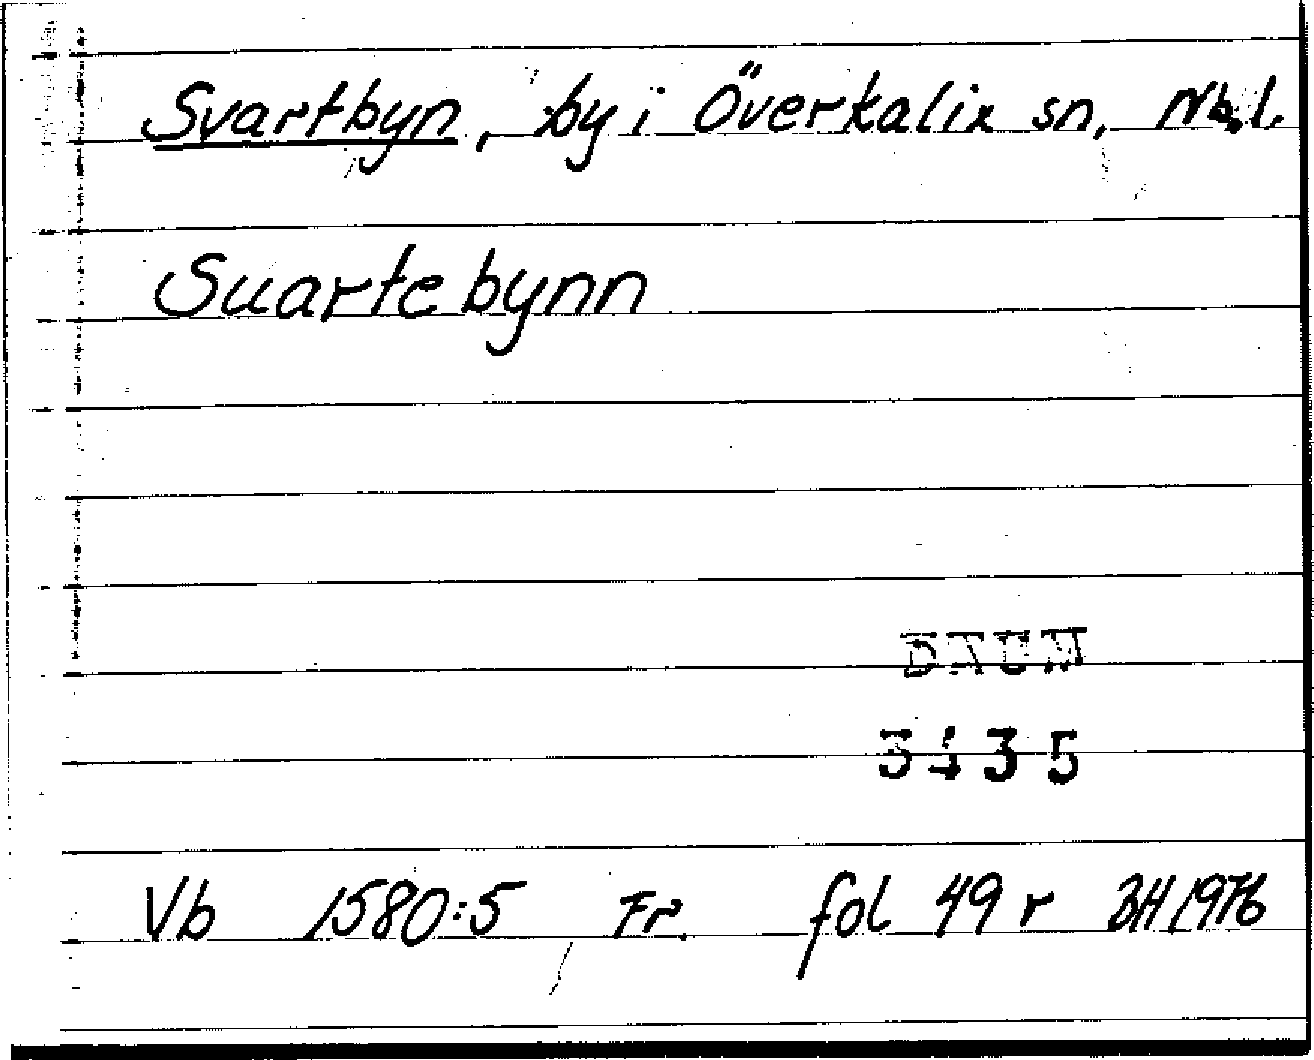 Svartbyn, by i Överkalix sn, Nb.l.
Suartebynn
DAUM
3435
Vb 1580:5 Fr. fol 49 r BH 1976